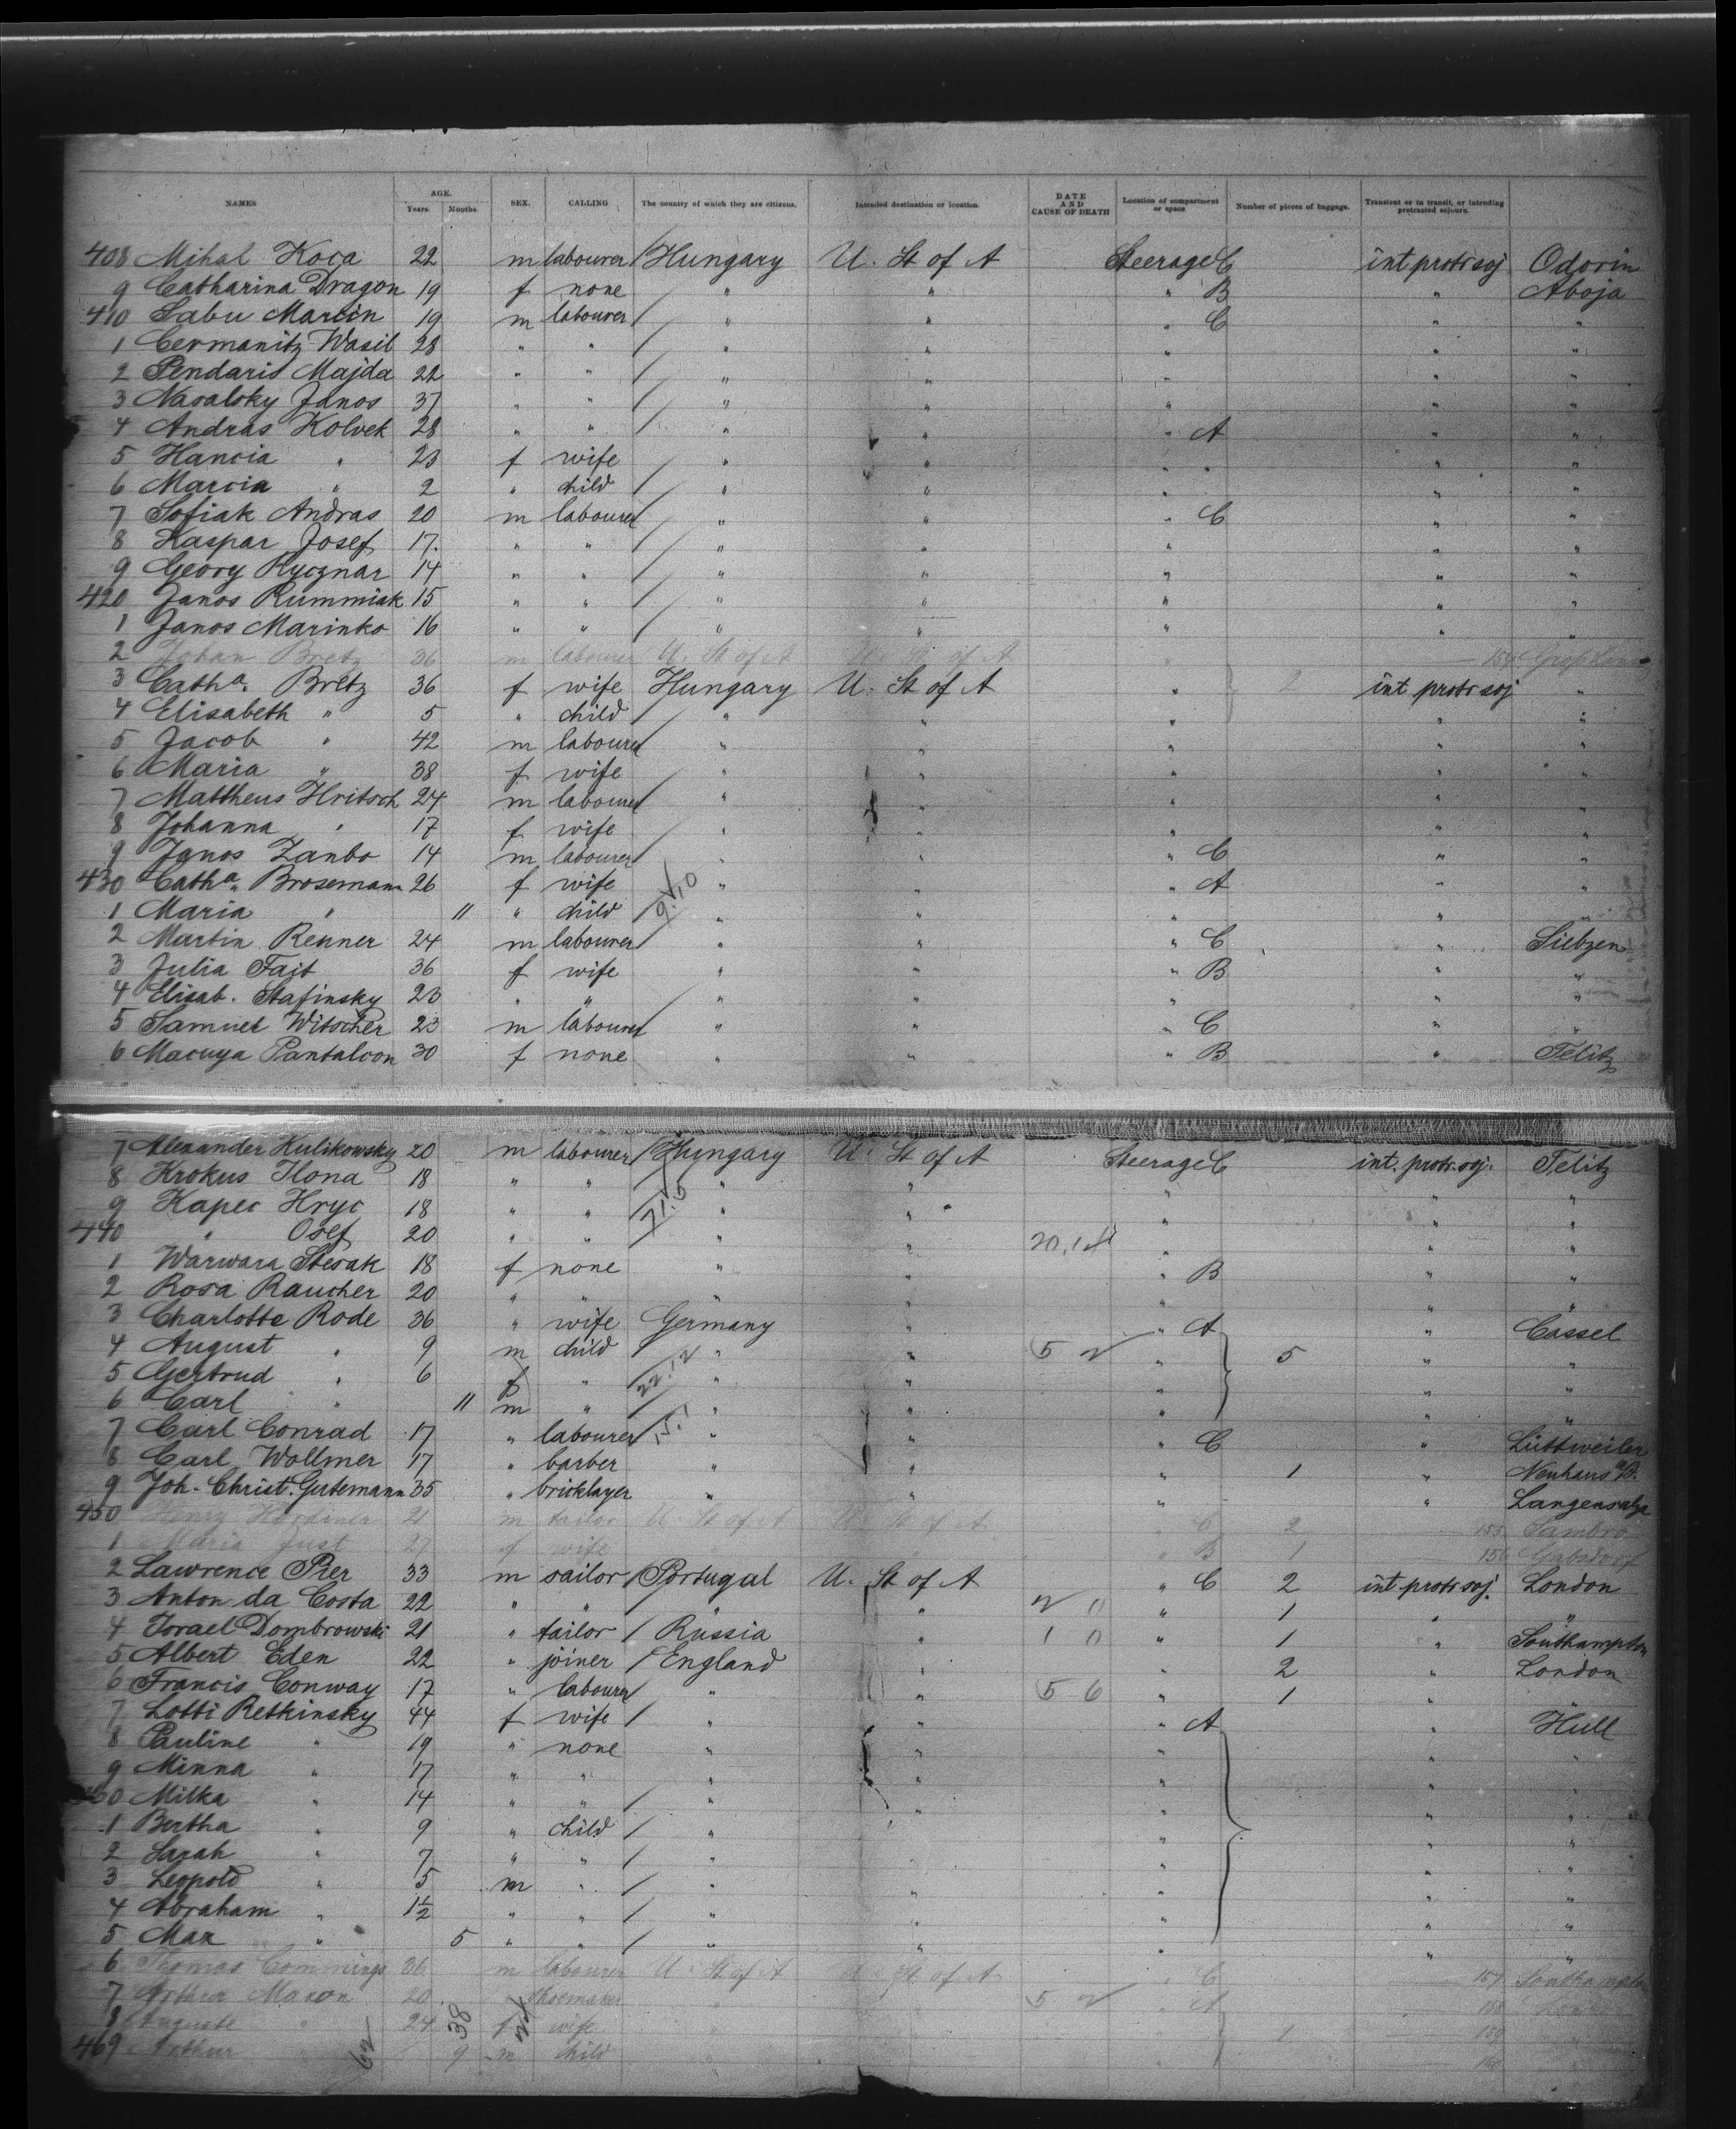 NAMES AGE. Years. Months. SEX. CALLING The country of which they are citizens. Intended destination or location. DATE AND CAUSE OF DEATH Location of compartment or space Number of pieces of baggage. Transient or in transit, or intending protracted sojourn.
408 Mihal Koca 22 m labourer Hungary U. St of A Steerage C int protr soj Odorin
9 Catharina Dragon 19 f none " " " B " Aboja
410 Sabu Martin 19 m labourer " " " C " "
1 Cermanitz Wasil 28 " " " " " " "
2 Pendaris Majda 22 " " " " " " "
3 Nasalsky Janos 37 " " " " " " "
4 Andras Kolvek 28 " " " " " A " "
5 Hancia " 23 f wife " " " " " "
6 Marcia " 2 " child " " " " "
7 Sofiak Andras 20 m labourer " " " C " "
8 Kaspar Josef 17. " " " " " " "
9 Georg Hycznar 14 " " " " " " "
420 Janos Rummiak 15 " " " " " " "
1 Janos Marinko 16 " " " " " " "
2 Johan Bretz 36 m labourer U. St of A U. St of A "
3 Catha. Bretz 36 f wife Hungary U. St of A " 2 int protr soj "
4 Elisabeth " 5 " child " " " " "
5 Jacob " 42 m labourer " " " " "
6 Maria " 38 f wife " " " " "
7 Mattheus Hritsch 24 m labourer " " " " "
8 Johanna " 17 f wife " " " " "
9 Janos Zanbo 14 m labourer " " " C " "
430 Catha. Brosemann 26 f wife " " " A " "
1 Maria " 11 " child " " " " "
2 Martin Renner 24 m labourer " " " C " Siebzen
3 Julia Fait 36 f wife " " " B " "
4 Elisab. Stafinsky 23 " " " " " " "
5 Samuel Witscher 23 m labourer " " " C " "
6 Macuya Pantalcon 30 f none " " " B " Felitz
7 Alexander Kulikowsky 20 m labourer Hungary U. St of A Steerage C int. protr. soj. Felitz
8 Krokus Ilona 18 " " " " " " "
9 Kapec Hryc 18 " " " " " " "
440 " Osef 20 " " " " " " "
1 Warwara Stesak 18 f none " " " B " "
2 Rosa Raucher 20 " " " " " " "
3 Charlotte Rode 36 " wife Germany " " A " Cassel
4 August " 9 m child " " 5 " 5 " "
5 Gertrud " 6 f " " " " " "
6 Carl " 11 m " " " " " "
7 Carl Conrad 17 " labourer " " " C " Lüttweiler
8 Carl Wollmer 17 " barber " " " 1 " Neuhaus a/
9 Joh. Christ. Gutemann 35 " bricklayer " " " " Langensalza
450 Henry 21 m tailor U. St of A U. St of A " C 2 155
1 Maria Just 27 f wife " " " B 1 156 Gabsdorf
2 Lawrence Pier 33 m sailor Portugal U. St of A " C 2 int protr soj. London
3 Anton da Costa 22 " " " " " 1 " "
4 Israel Dombrowski 21 " tailor Russia " 1 0 " 1 " Southampton
5 Albert Eden 22 " joiner England " " 2 " London
6 Francis Conway 17 " labourer " " 5 6 " 1 " "
7 Lotti Retkinsky 44 f wife " " " A " Hull
8 Pauline " 19 " none " " " " "
9 Minna " 17 " " " " " " "
460 Milka " 14 " " " " " " "
1 Bertha " 9 " child " " " " "
2 Sarah " 7 " " " " " "
3 Leopold " 5 m " " " " " "
4 Abraham " 1½ " " " " " " "
5 Max " 5 " " " " " " "
6 Thomas Commings 36 m labourer U. St of A U. St of A " C 157 Southampton
7 Arthur Mason 20 " shoemaker " " 5 " A 158
8 Auguste " 24 f wife 1 159
469 Arthur 9 m child
62 38 24